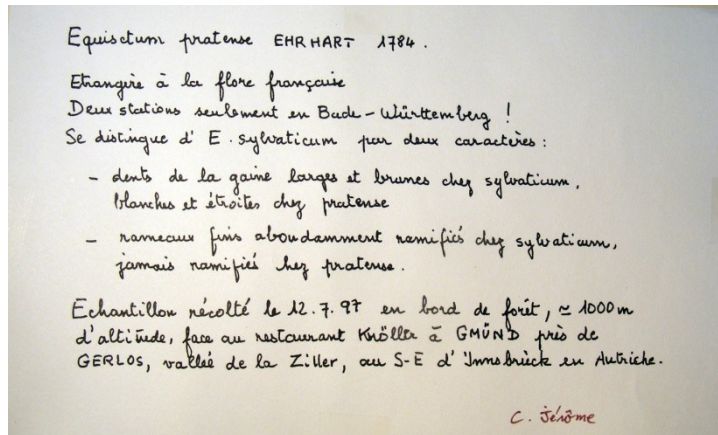 Equisetum pratense EHRHART 1784.
Etrangère à la flore française
Deux stations seulement en Bade-Württemberg !
Se distingue d'E. sylvaticum par deux caractères :
- dents de la gaine larges et brunes chez sylvaticum,
blanches et étroites chez pratense
- rameaux fins abondamment ramifiés chez sylvaticum,
jamais ramifiés hez pratense.
Echantillon récolté le 12.7.97 en bord de forêt, ≃ 1000 m
d'altitude, face au restaurant Knöller à GMÜND près de
GERLOS, vallée de la Ziller, au S-E d'Innsbrück en Autriche.
C. Jérôme